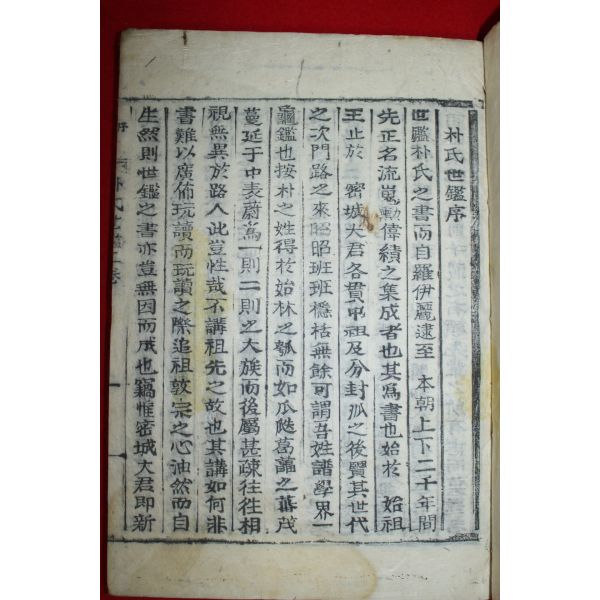 朴氏世鑑序
世鑑朴氏之書而自羅伊麗逮至 本朝上下二千年間
先正名流嵬勳偉績之集成者也其爲書也始於 始祖
王止於 密城大君各貫中祖及分封派之後贒其世代
之次門路之來昭昭班班檃栝無餘可謂吾姓譜學界一
龜鑑也按朴之姓得於始林之瓠而如瓜瓞葛藟之葉茂
蔓延于中表蔚爲一則二則之大族而後屬甚疎往往相
視無異於路人此豈性哉不講祖先之故也其講如何非
書難以廣佈玩讀而玩讀之際追祖敦宗之心油然而自
生然則世鑑之書亦豈無因而成也竊惟密城大君即新
朴氏世鑑 卷